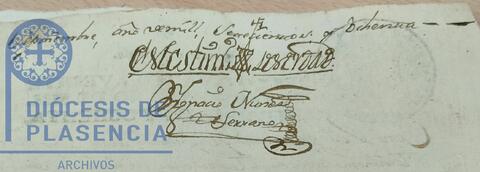 Septiembre, año de mill, Setezientos y Ochenta
En testim.º de verdad
Ygnacio Nuñez
Serrano
DIÓCESIS DE
PLASENCIA
ARCHIVOS